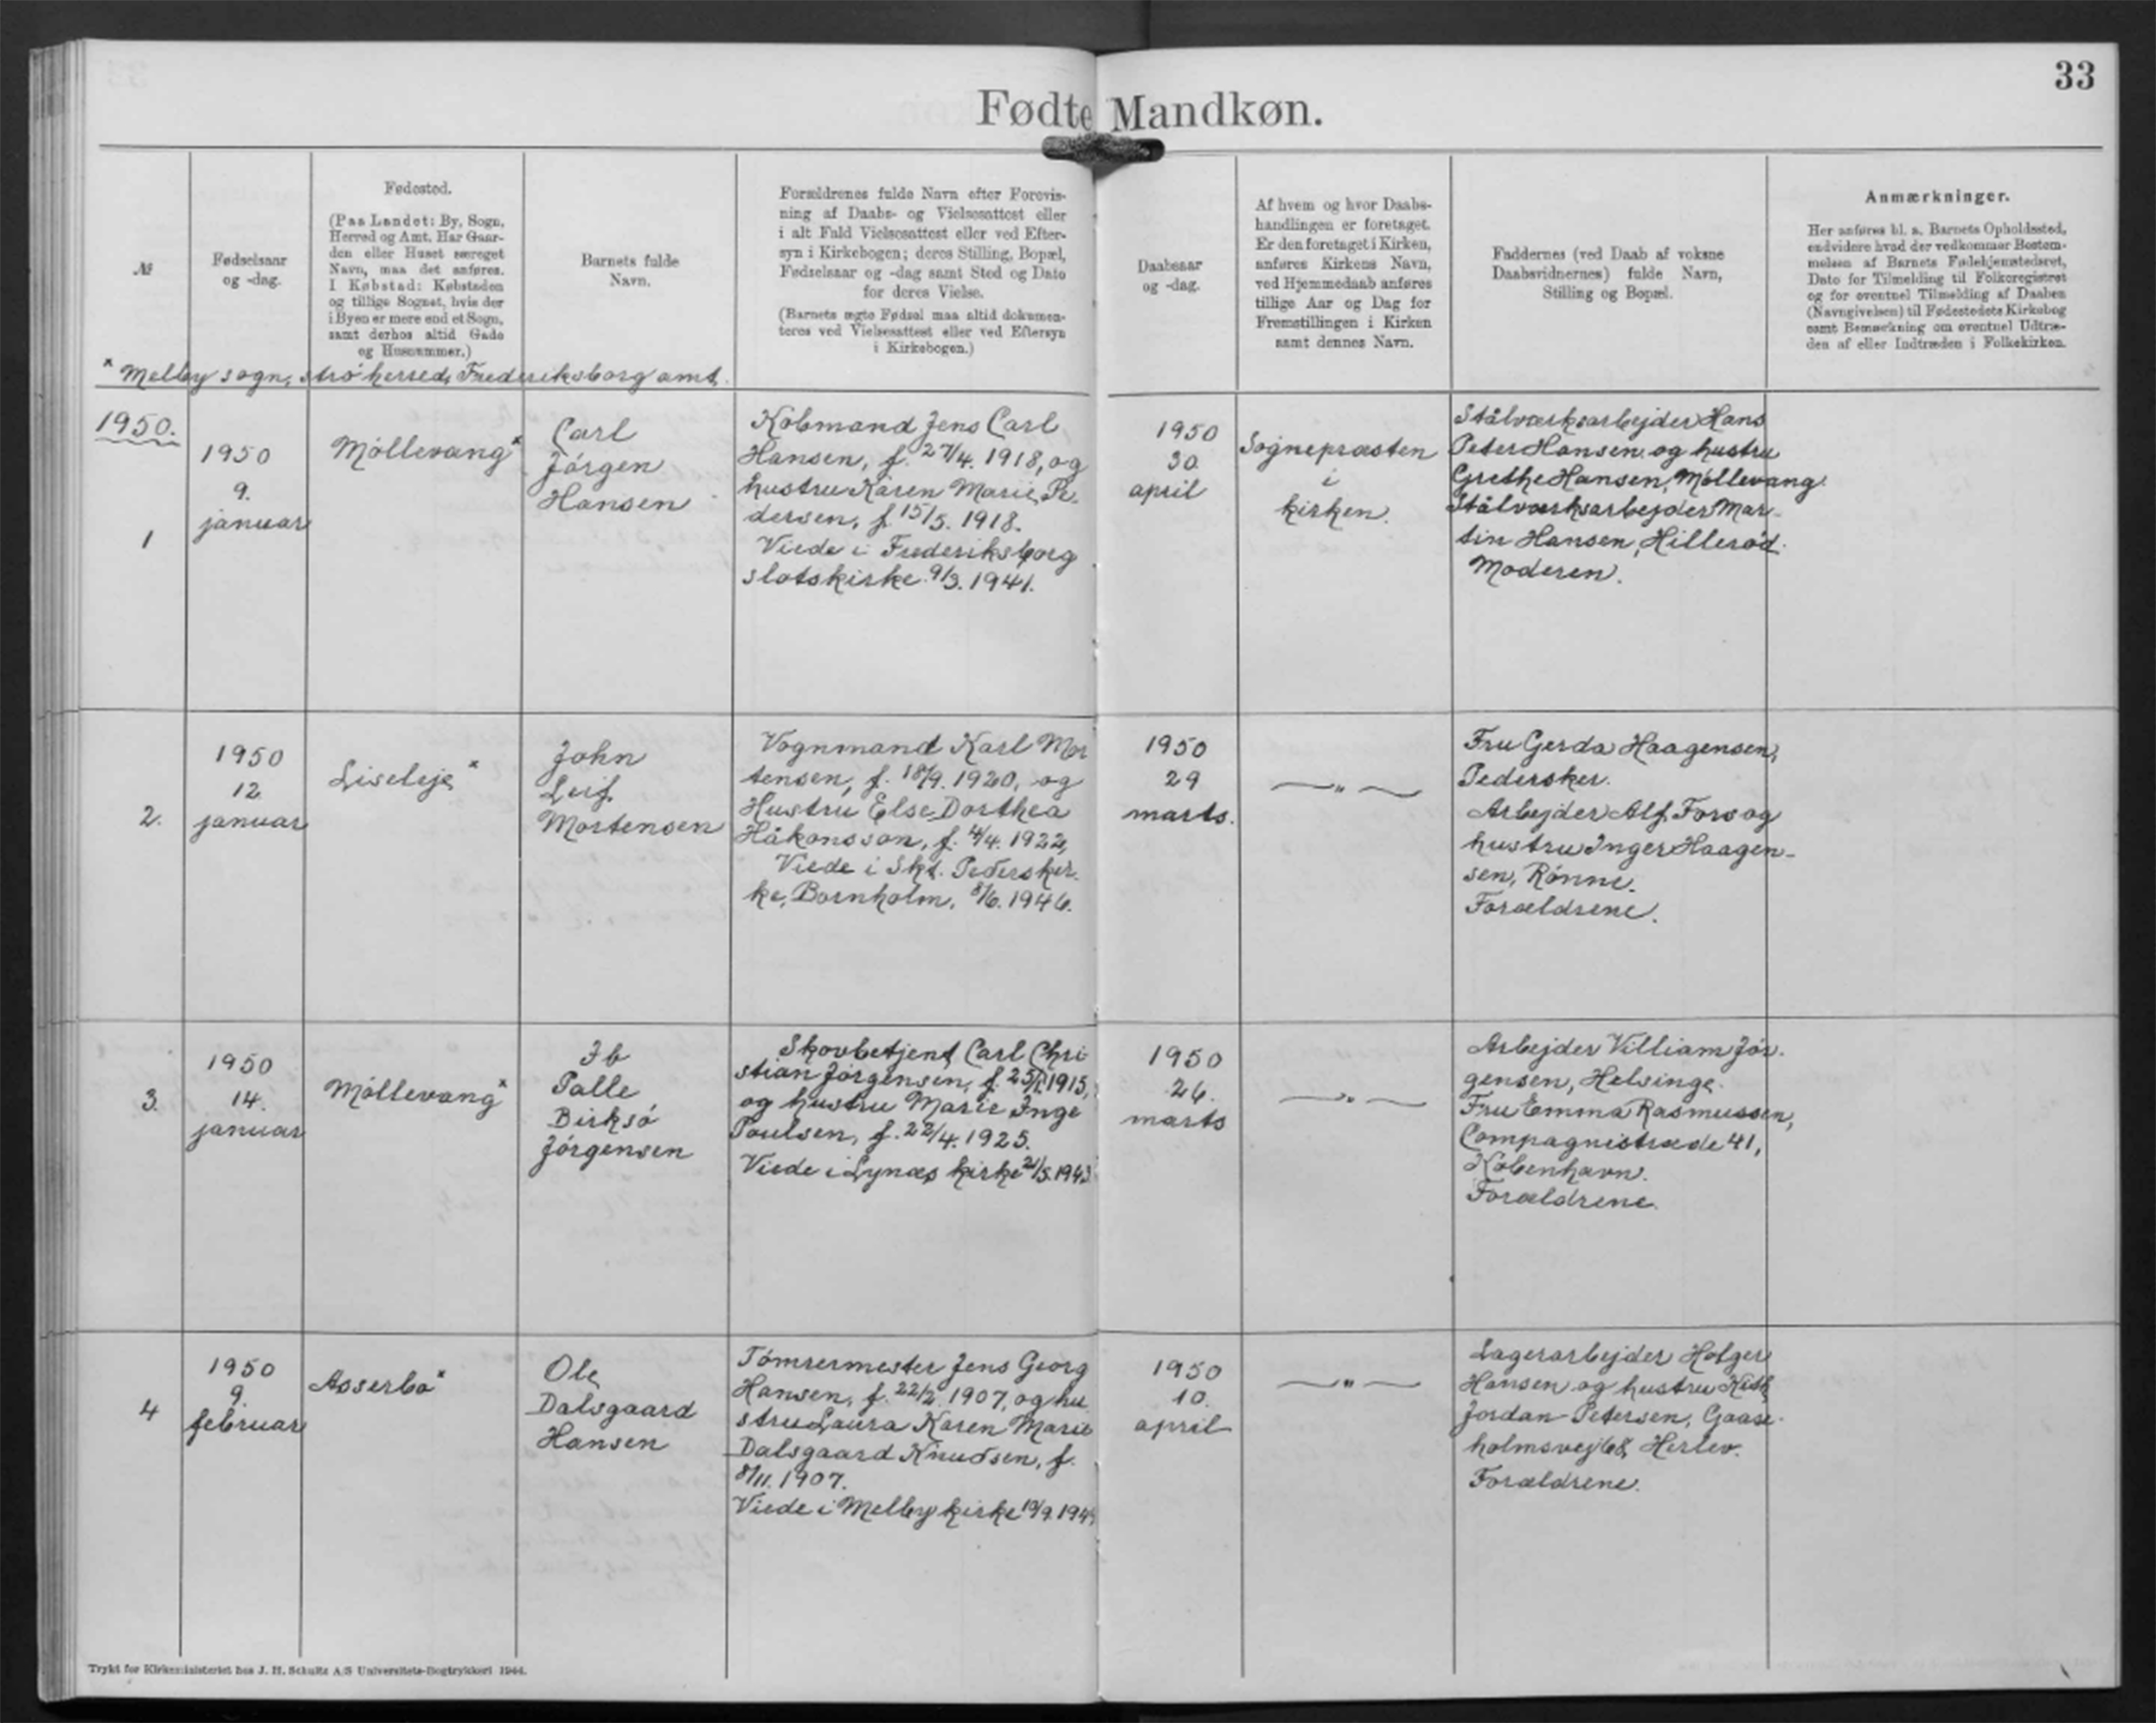 33
Fødte Mandkøn.
№
Fødselsaar
og -dag.
Fødested.
(Paa Landet: By, Sogn,
Herred og Amt. Har Gaar-
den eller Huset særeget
Navn, maa det anføres.
I Købstad: Købstaden
og tillige Sognet, hvis der
i Byen er mere end et Sogn,
samt derhos altid Gade
og Husnummer.)
Barnets fulde
Navn.
Forældrenes fulde Navn efter Forevis-
ning af Daabs- og Vielsesattest eller
i alt Fald Vielsesattest eller ved Efter-
syn i Kirkebogen; deres Stilling, Bopæl,
Fødselsaar og -dag samt Sted og Dato
for deres Vielse.
(Barnets ægte Fødsel maa altid dokumen-
teres ved Vielsesattest eller ved Eftersyn
i Kirkebogen.)
Daabsaar
og -dag.
Af hvem og hvor Daabs-
handlingen er foretaget.
Er den foretaget i Kirken,
anføres Kirkens Navn,
ved Hjemmedaab anføres
tillige Aar og Dag for
Fremstillingen i Kirken
samt dennes Navn.
Faddernes (ved Daab af voksne
Daabsvidnernes) fulde Navn,
Stilling og Bopæl.
Anmærkninger.
Her anføres bl. a. Barnets Opholdssted,
endvidere hvad der vedkommer Bestem-
melsen af Barnets Fødehjemstedsret,
Dato for Tilmelding til Folkeregistret
og for eventuel Tilmelding af Daaben
(Navngivelsen) til Fødestedets Kirkebog
samt Bemærkning om eventuel Udtræ-
den af eller Indtræden i Folkekirken.
* Melby sogn, strø herred, Frederiksborg amt.
1950.
1
1950
9.
januar
Møllevang*
Carl
Jørgen
Hansen
Købmand Jens Carl
Hansen, f. 27/4. 1918, og
hustru Karen Marie Pe-
dersen, f. 15/5. 1918.
Viede i Frederiksborg
slotskirke 9/3. 1941.
1950
30.
april
Sognepræsten
i
kirken.
Stålværksarbejder Hans
Peter Hansen og hustru
Grethe Hansen, Møllevang.
Stålværksarbejder Mar-
tin Hansen, Hillerød.
Moderen.
2.
1950
12
januar
Liseleje*
John
Leif
Mortensen
Vognmand Karl Mor
tensen, f. 18/9. 1920, og
Hustru Else Dorthea
Håkonsson, f. 4/4. 1922,
Viede i Skt. Pedersker-
ke, Bornholm, 8/6. 1946.
1950
29
marts.
— " —
Fru Gerda Haagensen,
Pedersker.
Arbejder Alf Fors og
hustru Inger Haagen-
sen, Rønne.
Forældrene.
3.
1950
14.
januar
Møllevang*
Ib
Palle
Birksø
Jørgensen
Skovbetjent Carl Chri
stian Jørgensen, f. 1915,
og hustru Marie Inge
Poulsen, f. 22/4. 1925.
Viede i Lynæs kirke 21/5. 1943
1950
26.
marts
— " —
Arbejder Villiam Jør-
gensen, Helsinge.
Fru Emma Rasmussen,
Compagnistræde 41,
København.
Forældrene.
4
1950
9.
februar
Asserbo*
Ole
Dalsgaard
Hansen
Tømrermester Jens Georg
Hansen, f. 22/2. 1907, og hu
stru Laura Karen Marie
Dalsgaard Knudsen, f.
8/11. 1907.
Viede i Melby kirke
1950
10.
april
— " —
Lagerarbejder Holger
Hansen og hustru
Jordan Petersen, Gaase-
holmsvej 68, Herlev.
Forældrene.
Trykt for Kirkeministeriet hos J. H. Schultz A/S Universitets-Bogtrykkeri 1944.